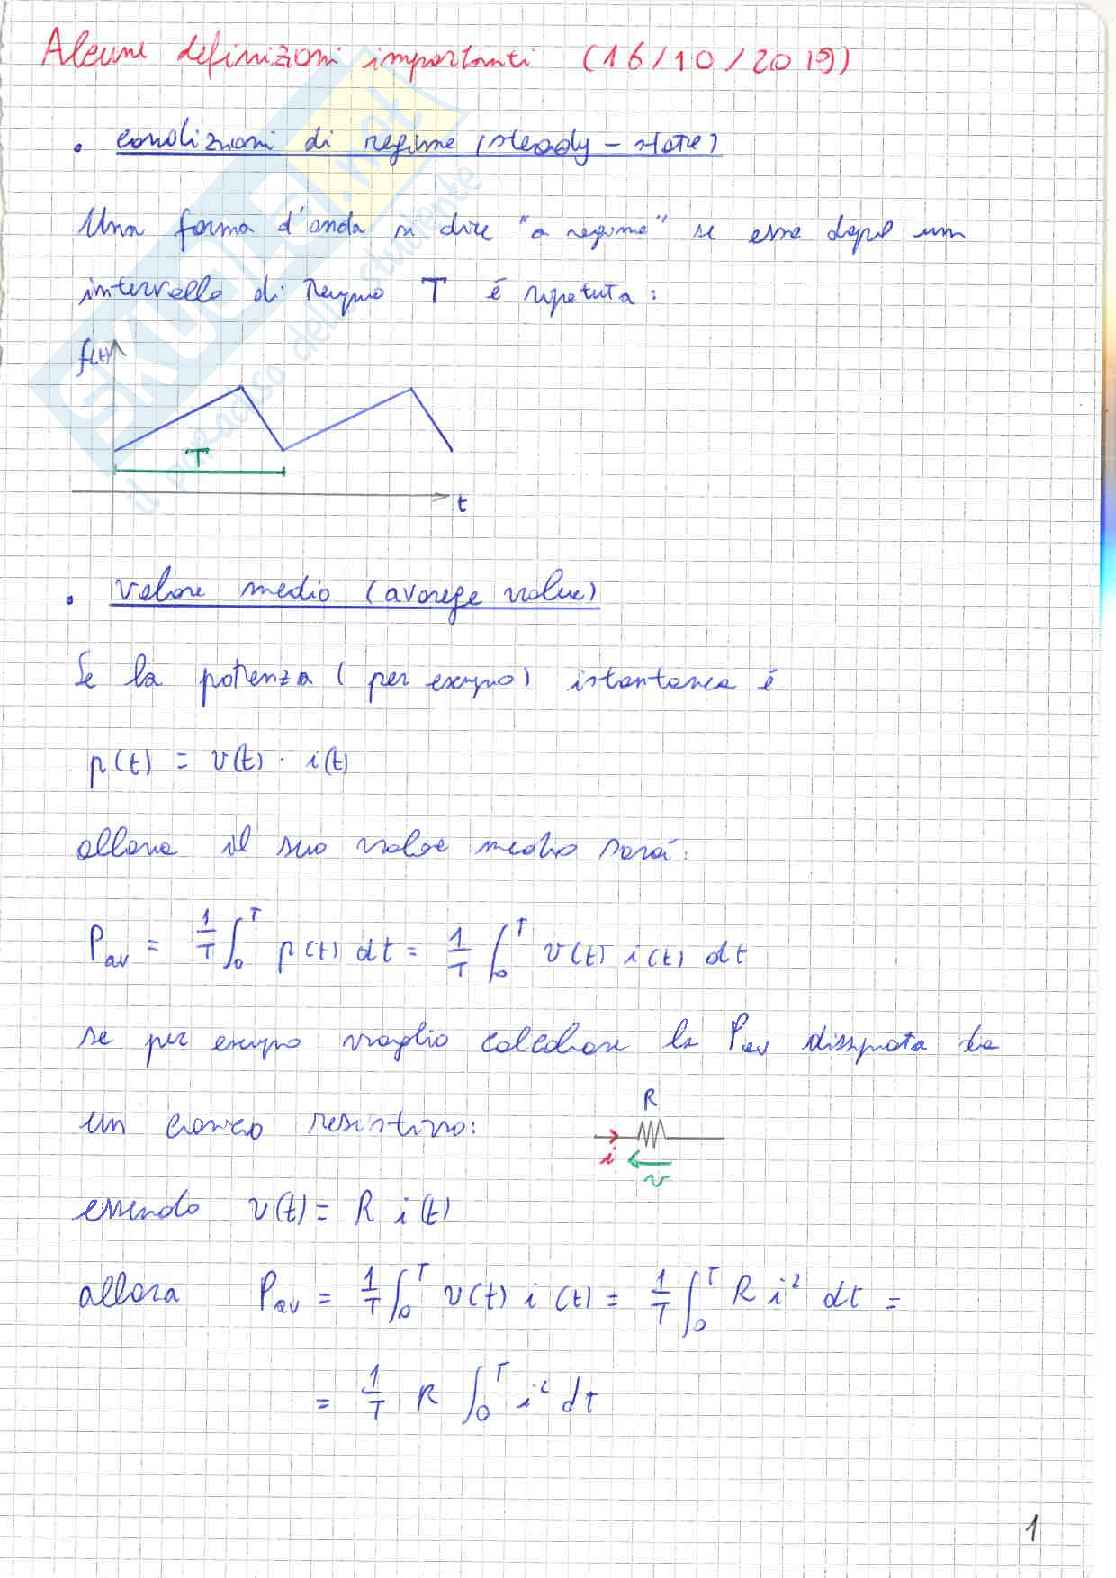 Alcune definizioni importanti (16/10/2019)
• condizioni di regime (steady-state)
Una forma d'onda si dice "a regime" se essa dopo un
intervallo di tempo T è ripetuta:
f(t)
T
t
• valore medio (average value)
Se la potenza (per esempio) istantanea è
p(t) = v(t) · i(t)
allora il suo valore medio sarà:
Pav = 1/T ∫₀ᵀ p(t) dt = 1/T ∫₀ᵀ v(t) i(t) dt
se per esempio voglio calcolare la Pav dissipata da
un carico resistivo:
R
i
v
essendo v(t) = R i(t)
allora Pav = 1/T ∫₀ᵀ v(t) i(t) = 1/T ∫₀ᵀ R i² dt =
= 1/T R ∫₀ᵀ i² dt
1
skuola.net
il paradiso dello studente